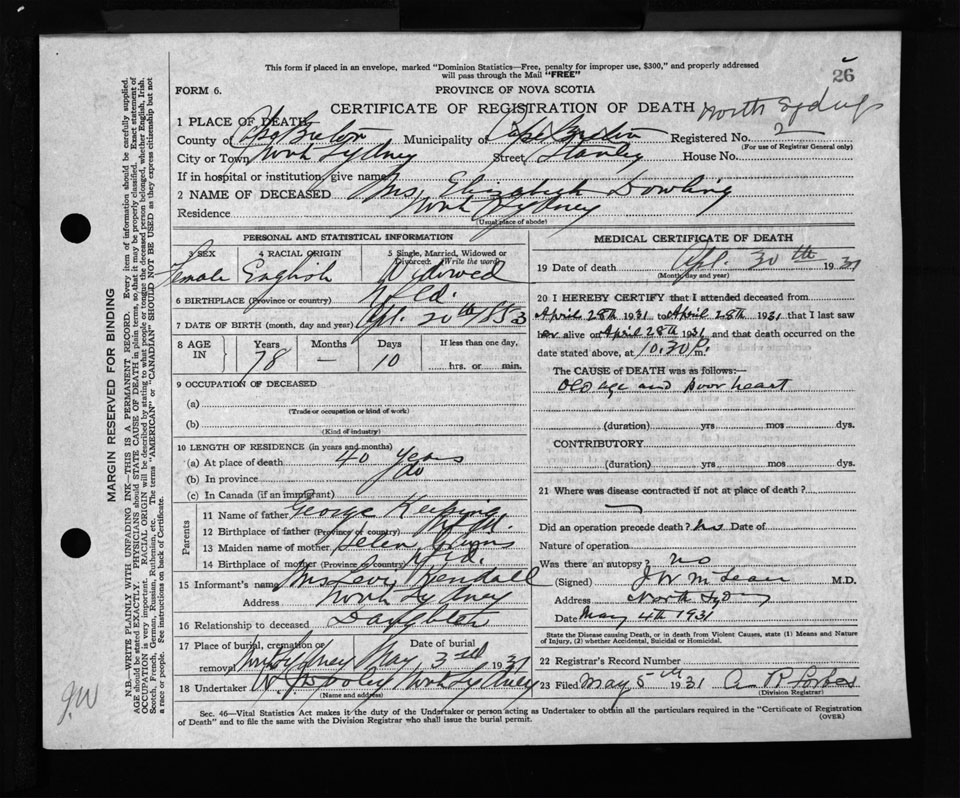 26
This form if placed in an envelope, marked "Dominion Statistics—Free, penalty for improper use, $300," and properly addressed
will pass through the Mail "FREE"
FORM 6.
PROVINCE OF NOVA SCOTIA
CERTIFICATE OF REGISTRATION OF DEATH North Sydney
1 PLACE OF DEATH
County of Cape Breton Municipality of Cape Breton Registered No. 2
(For use of Registrar General only)
City or Town North Sydney Street Stanley House No.
If in hospital or institution, give name
2 NAME OF DECEASED Mrs Elizabeth Dowling
Residence North Sydney
(Usual place of abode)
PERSONAL AND STATISTICAL INFORMATION
3 SEX 4 RACIAL ORIGIN 5 Single, Married, Widowed or
Divorced. (Write the word)
Female English Widowed
6 BIRTHPLACE (Province or country) Nfld.
7 DATE OF BIRTH (month, day and year) Apl. 20th 1853
8 AGE IN Years Months Days If less than one day,
78 — 10 hrs. or min.
9 OCCUPATION OF DECEASED
(a)
(Trade or occupation or kind of work)
(b)
(Kind of industry)
10 LENGTH OF RESIDENCE (in years and months)
(a) At place of death 40 years
(b) In province do
(c) In Canada (if an immigrant)
Parents
11 Name of father George Keeping
12 Birthplace of father (Province or country) Nfld.
13 Maiden name of mother Helen
14 Birthplace of mother (Province or Country) Nfld.
15 Informant's name Mrs Levi Kendall
Address North Sydney
16 Relationship to deceased Daughter
17 Place of burial, cremation or Date of burial
removal North Sydney May 3rd 1931
18 Undertaker North Sydney
(Name and address)
MEDICAL CERTIFICATE OF DEATH
19 Date of death Apl. 30th 1931
(Month, day and year)
20 I HEREBY CERTIFY that I attended deceased from
April 28th 1931 to April 28th 1931 that I last saw
her alive on April 28th 1931 and that death occurred on the
date stated above, at 10.30 P. m.
The CAUSE of DEATH was as follows:—
Old age and poor heart
(duration) yrs mos dys.
CONTRIBUTORY
(duration) yrs mos dys.
21 Where was disease contracted if not at place of death?
Did an operation precede death? no Date of
Nature of operation
Was there an autopsy? no
(Signed) J W McLean M.D.
Address North Sydney
Date May 4th 1931
State the Disease causing Death, or in death from Violent Causes, state (1) Means and Nature
of Injury, (2) whether Accidental, Suicidal or Homicidal.
22 Registrar's Record Number
23 Filed May 5th 1931 A R Forbes
(Division Registrar)
Sec. 46—Vital Statistics Act makes it the duty of the Undertaker or person acting as Undertaker to obtain all the particulars required in the "Certificate of Registration
of Death" and to file the same with the Division Registrar who shall issue the burial permit.
(OVER)
MARGIN RESERVED FOR BINDING
N.B.—WRITE PLAINLY WITH UNFADING INK—THIS IS A PERMANENT RECORD. Every item of information should be carefully supplied.
AGE should be stated EXACTLY. PHYSICIANS should STATE CAUSE OF DEATH in plain terms, so that it may be properly classified. Exact statement of
OCCUPATION is very important. RACIAL ORIGIN will be described by stating to what people or tongue the deceased person belonged, whether English, Irish,
Scotch, French, German, Russian, Ruthenian, etc. The terms "AMERICAN" or "CANADIAN" SHOULD NOT BE USED as they express citizenship but not
a race or people. See instructions on back of Certificate.